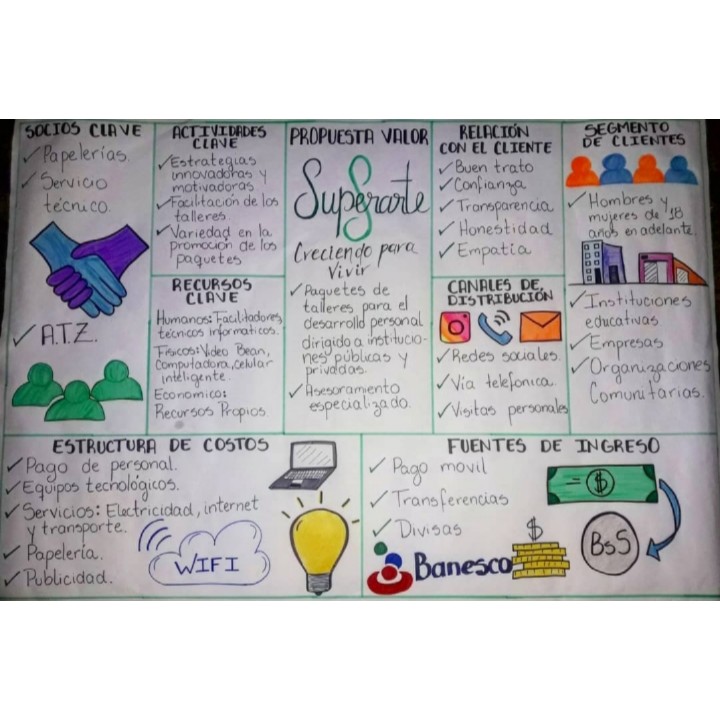 SOCIOS CLAVE
✓ Papelerías.
✓ Servicio
técnico.
✓ A.T.Z.
ACTIVIDADES
CLAVE
✓ Estrategias
innovadoras y
motivadoras
✓ Facilitación de los
talleres.
✓ Variedad en la
promoción de los
paquetes
RECURSOS
CLAVE
Humanos: Facilitadores,
técnicos informaticos.
Físicos: Video Bean,
Computadora, celular
inteligente.
Economico:
Recursos Propios
PROPUESTA VALOR
Superarte
Creciendo para
Vivir
✓ Paquetes de
talleres para el
desarrollo personal
dirigido a institucio-
nes públicas y
privadas.
✓ Asesoramiento
especializado.
RELACIÓN
CON EL CLIENTE
✓ Buen trato
✓ Confianza
✓ Transparencia
✓ Honestidad
✓ Empatía
CANALES DE
DISTRIBUCIÓN
✓ Redes sociales.
✓ Via telefonica.
✓ Visitas personales
SEGMENTO
DE CLIENTES
✓ Hombres y
mujeres de 18
años en adelante.
✓ Instituciones
educativas
✓ Empresas
✓ Organizaciones
Comunitarias.
ESTRUCTURA DE COSTOS
✓ Pago de personal.
✓ Equipos tecnológicos.
✓ Servicios: Electricidad, internet
y transporte.
✓ Papelería.
✓ Publicidad.
WIFI
FUENTES DE INGRESO
✓ Pago movil
✓ Transferencias
✓ Divisas
Banesco
$
$
BsS